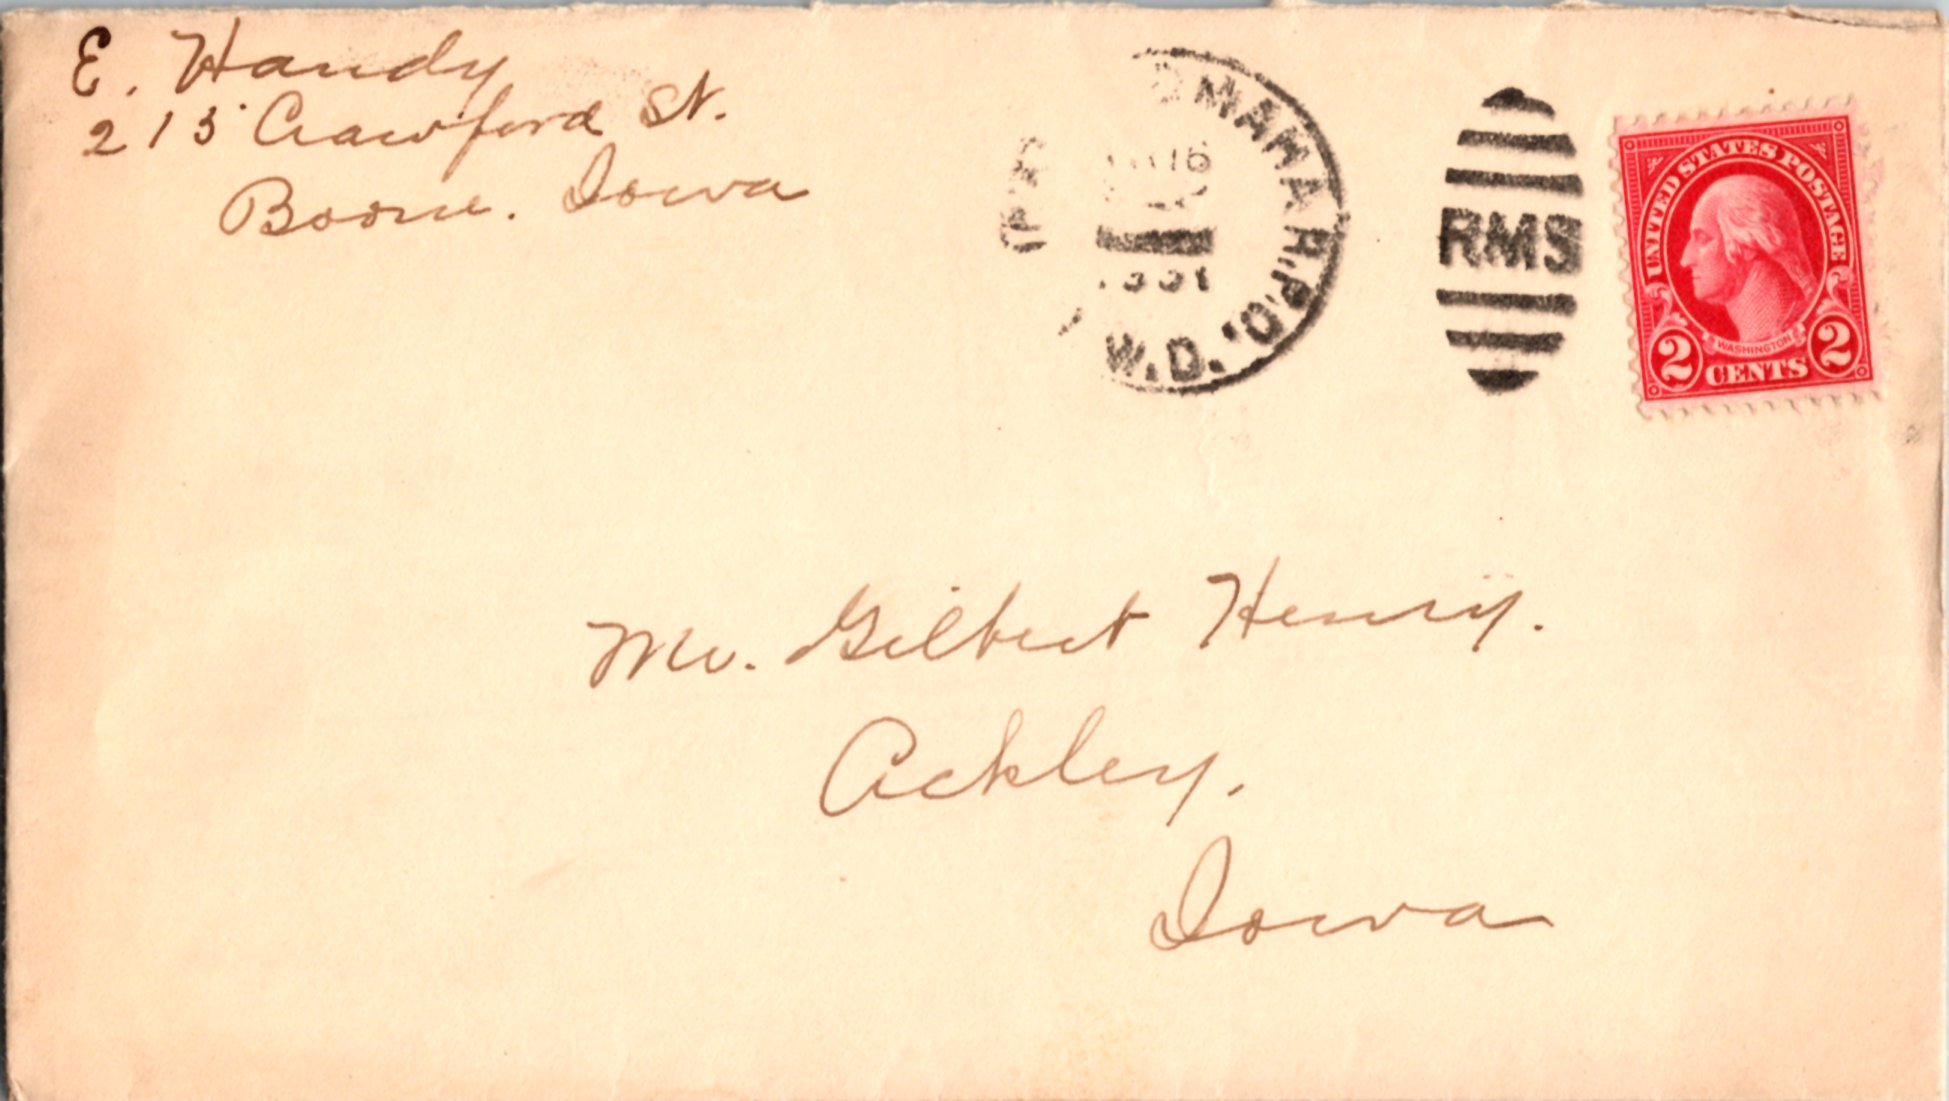 E. Handy
215 Crawford St.
Boone. Iowa
OMAHA R.P.O.
16
1931
W.D.
RMS
UNITED STATES POSTAGE
WASHINGTON
2 CENTS 2
Mr. Gilbert Henry.
Ackley,
Iowa